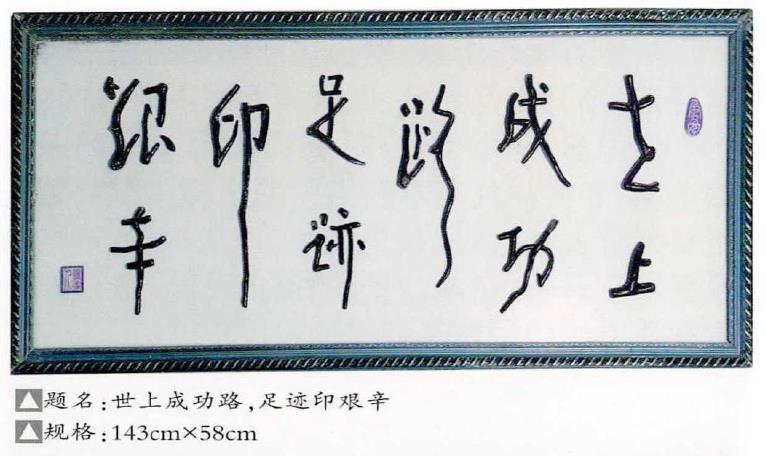 世上
成功
路
足跡
印
艱辛
题名:世上成功路,足迹印艰辛
规格:143cm×58cm